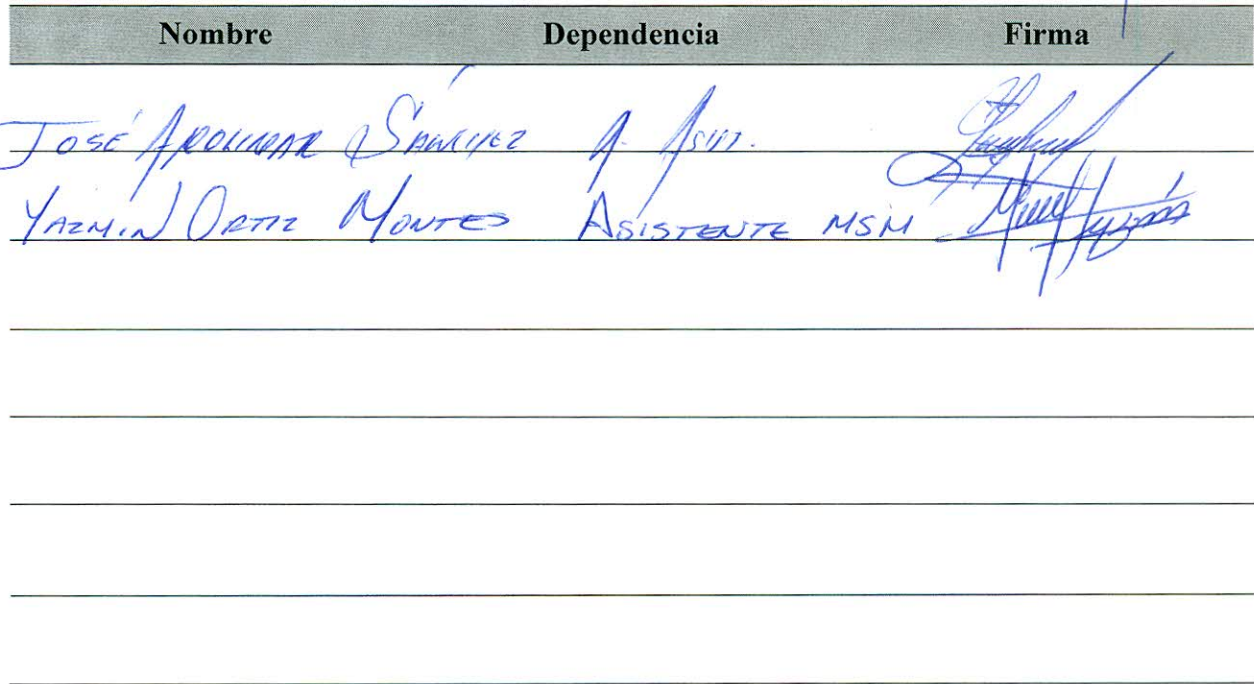 Nombre Dependencia Firma
JOSÉ APOLINAR SÁNCHEZ A.
YAZMIN ORTIZ MONTES ASISTENTE MSM